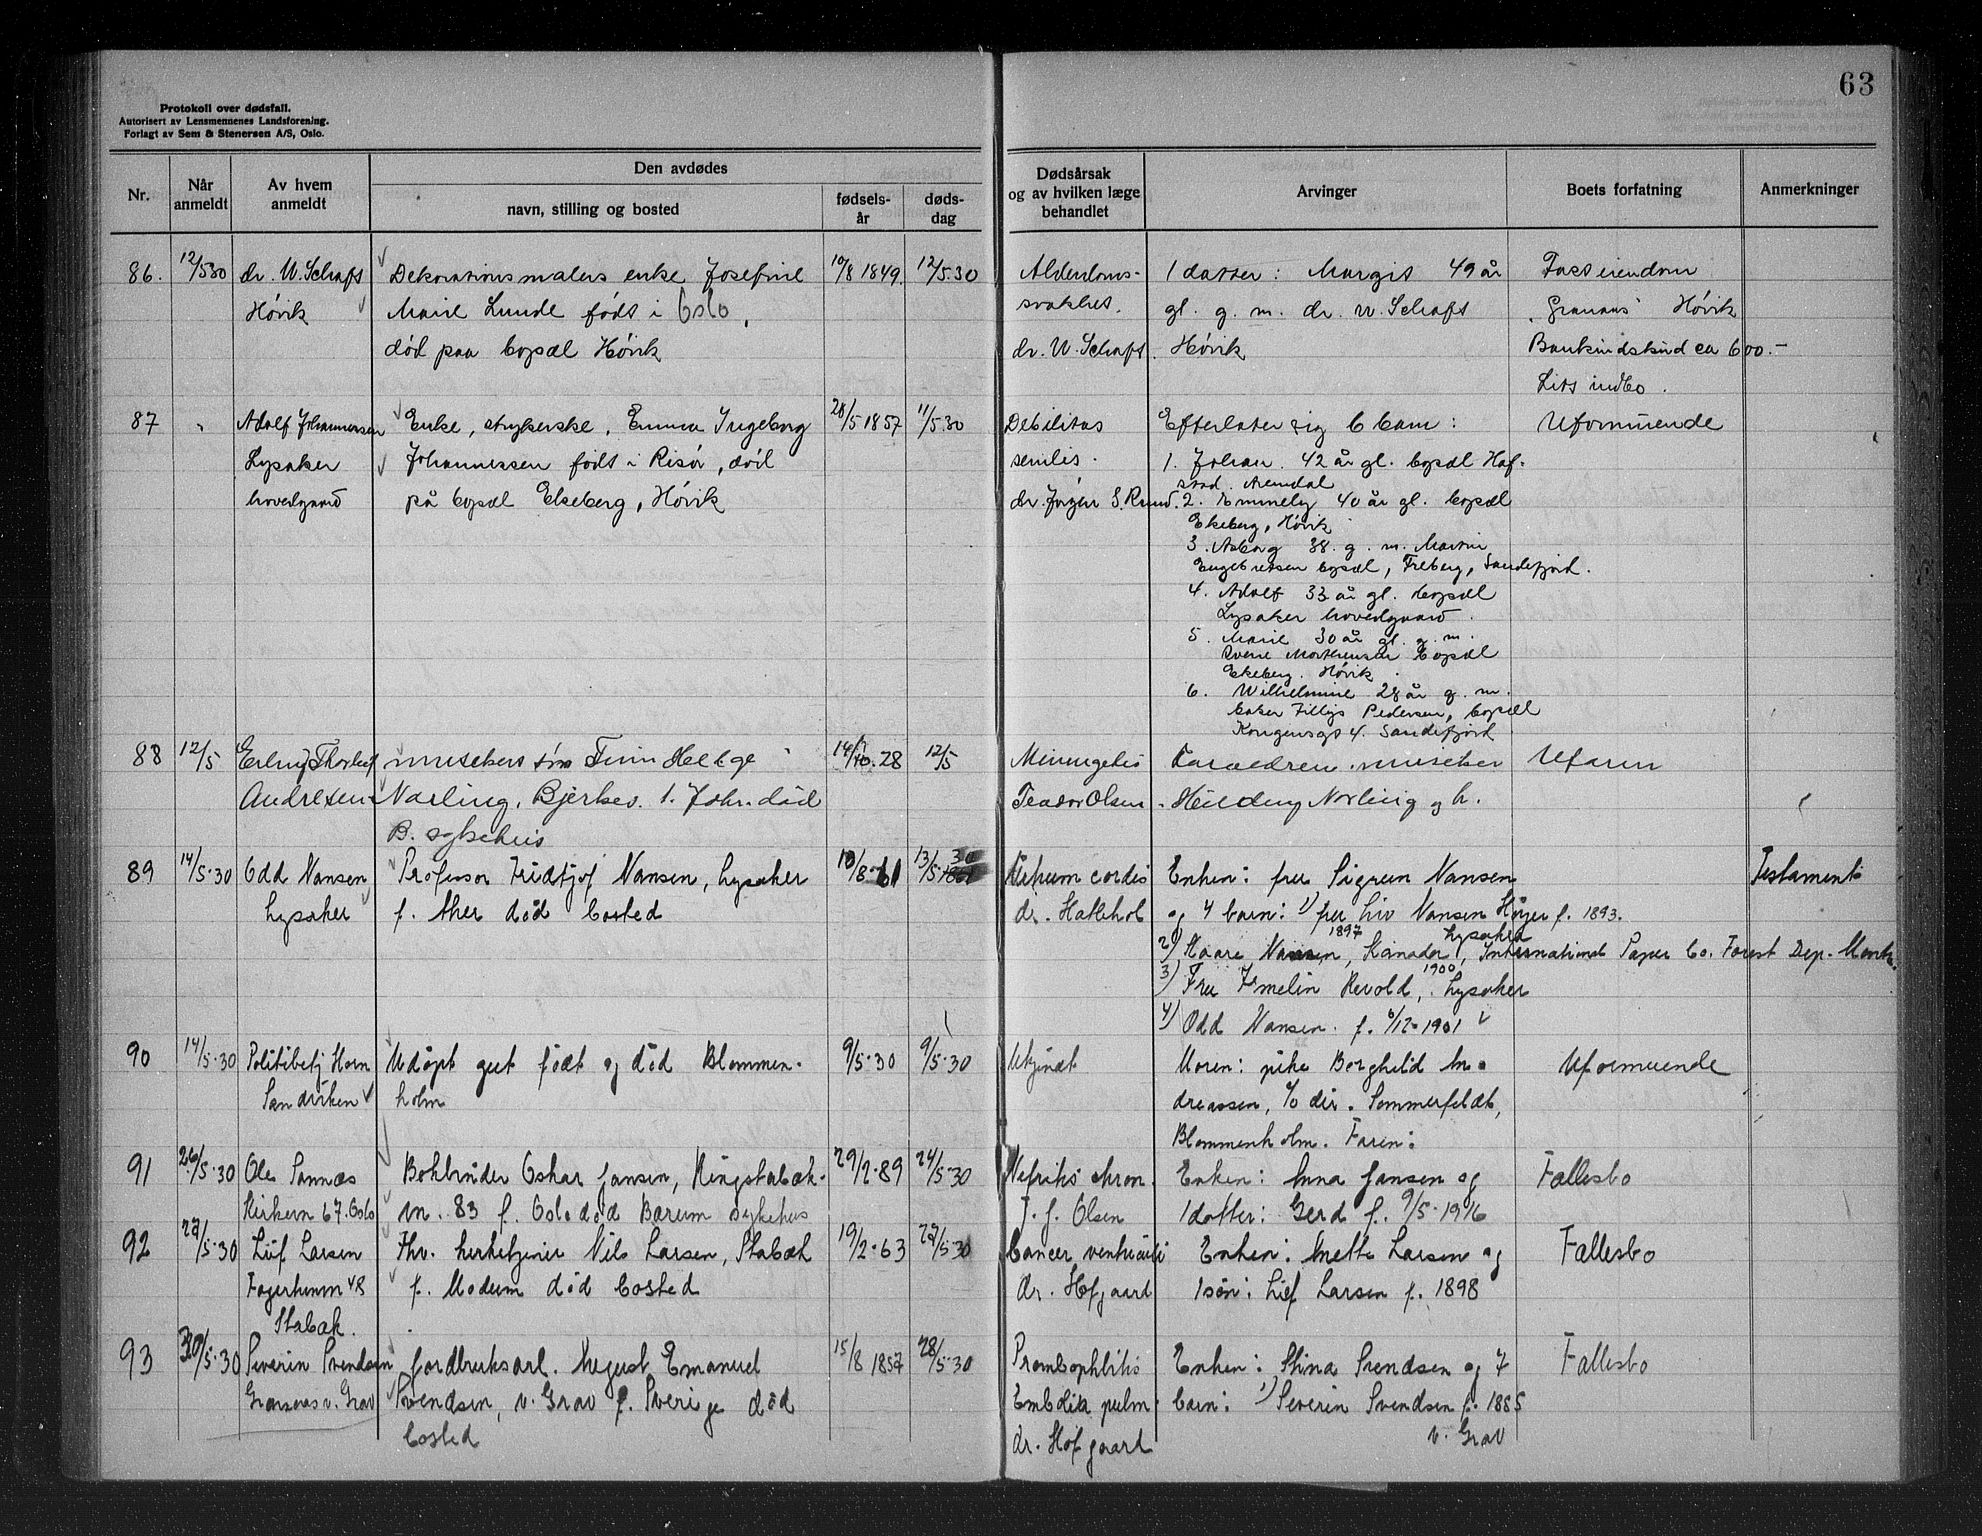 63
Protokoll over dødsfall.
Autorisert av Lensmennenes Landsforening.
Forlagt av Sem & Stenersen A/S, Oslo.
Nr.
Når anmeldt
Av hvem anmeldt
Den avdødes
navn, stilling og bosted
fødsels-år
døds-dag
Dødsårsak og av hvilken læge behandlet
Arvinger
Boets forfatning
Anmerkninger
86. 12/5 30 dr. W. Schaft Dekorationsmalers enke Josefine 10/8 1849. 12/5.30 Alderdoms- 1 datter: Margit 49 år Fast eiendom
Høvik Marie Lunde født i Oslo, svakhet. gl. g. m. dr. W. Schaft "Granans" Høvik
død paa bopæl Høvik dr. W. Schaft. Høvik Bankindskud ca 600.-
Lits indbo.
87 " Adolf Johannessen Enke, strykerske, Emma Ingeborg 28/5 1857 11/5 30 Debilitas Efterlater sig 6 barn: Uformuende
Lysaker Johannessen født i Risør, død senilis. 1. Johan. 42 år gl. bopæl Haf-
stad. Arendal
hovedgaard på bopæl Ekeberg, Høvik dr. Jørgen S. Ruud. 2. Emmely 40 år gl. bopæl
Ekeberg, Høvik
3. Asborg 38. g. m. Martin
Engebretsen bopæl, Freberg, Sandefjord.
4. Adolf 33 år gl. bopæl
Lysaker hovedgaard.
5. Marie 30 år gl. g. m.
Sverre Marthinsen bopæl
Ekeberg. Høvik
6. Wilhelmine 28 år g. m.
baker Pedersen, bopæl
Kongensgt 4. Sandefjord
88 12/5 Erling Thorleif musikers søn Finn Helge 14/10.28 12/5 Meningelis Foraeldren musiker Uform
Andresen Narling, Bjerkev. 1. Jahr. død Teodor Olsen Norling og h.
B. sykehus
89 14/5.30 Odd Nansen Professor Fridtjof Nansen, Lysaker 10/8-61 13/5 30 cordis Enken: fru Sigrun Nansen Testament
Lysaker f. Aker død bosted dr. Hattehol og 4 barn: 1) fru Liv Nansen Høyer f. 1893.
Lysaker
2) Kaare Nansen, 1897 Kanada, International Paper Co. Forest Dep.
3) Fru Irmelin Revold, 1900 Lysaker
4) Odd Nansen. f. 6/12-1901
90 14/5.30 Politibetj Horn Udöpt gut födt og död Blommen- 9/5.30 9/5.30 Ukjendt Moren: pike Borghild An- Uformuende
Sandviken holm dreassen, c/o dir. Sommerfeldt,
Blommenholm. Faren:
91 26/5.30 Ole Sannæs Bokbinder Oskar Jansen, Ringstabæk- 29/2-89 24/5.30 Nefritis chron. Enken: Anna Jansen og Fællesbo
Kirkevn 67. Oslo vn. 83 f. Oslo död Bærum sykehus J. J. Olsen 1 datter: Gerd f. 9/5-1916
92 27/5.30 Leif Larsen Fhv. kirketjener Nils Larsen, Stabæk 19/2-63 22/5.30 Cancer ventriculi Enken: Anette Larsen og Fællesbo
Fagerheimvn 48 f. Modum död bosted dr. Hofgaard 1 sön: Leif Larsen f. 1898
Stabæk.
93 30/5.30 Severin Svendsen Jordbruksarb. August Emanuel 15/8 1857 28/5.30 Trombophlitis Enken: Stina Svendsen og 7 Fællesbo
v. Grav Svendsen, v. Grav f. Sverige död Embolia pulm. barn: 1) Severin Svendsen f. 1885
bosted dr. Hofgaard v. Grav